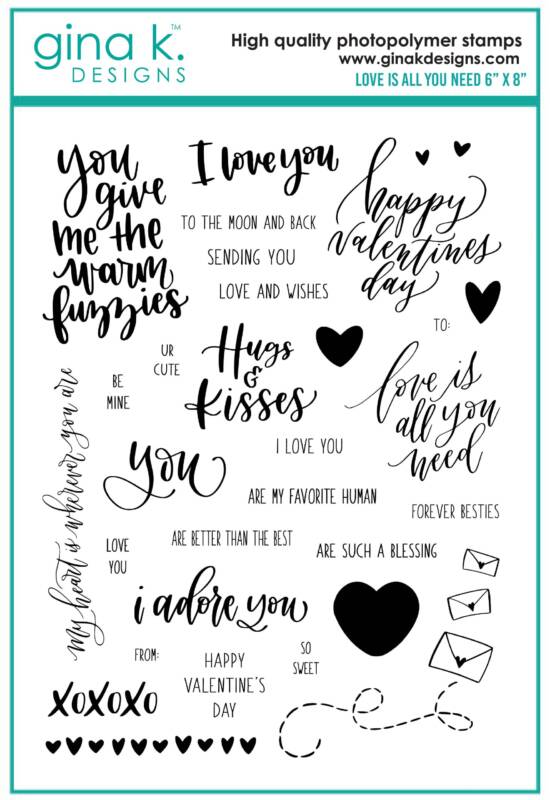 gina k.™
DESIGNS
High quality photopolymer stamps
www.ginakdesigns.com
LOVE IS ALL YOU NEED 6” X 8”
you
give
me the
warm
fuzzies
I love you
TO THE MOON AND BACK
SENDING YOU
LOVE AND WISHES
happy
valentines
day
TO:
UR
CUTE
BE
MINE
Hugs
&
Kisses
love is
all you
need
my heart is wherever you are
you
I LOVE YOU
ARE MY FAVORITE HUMAN
FOREVER BESTIES
ARE BETTER THAN THE BEST
ARE SUCH A BLESSING
LOVE
YOU
i adore you
FROM:
HAPPY
VALENTINE'S
DAY
SO
SWEET
XOXOXO